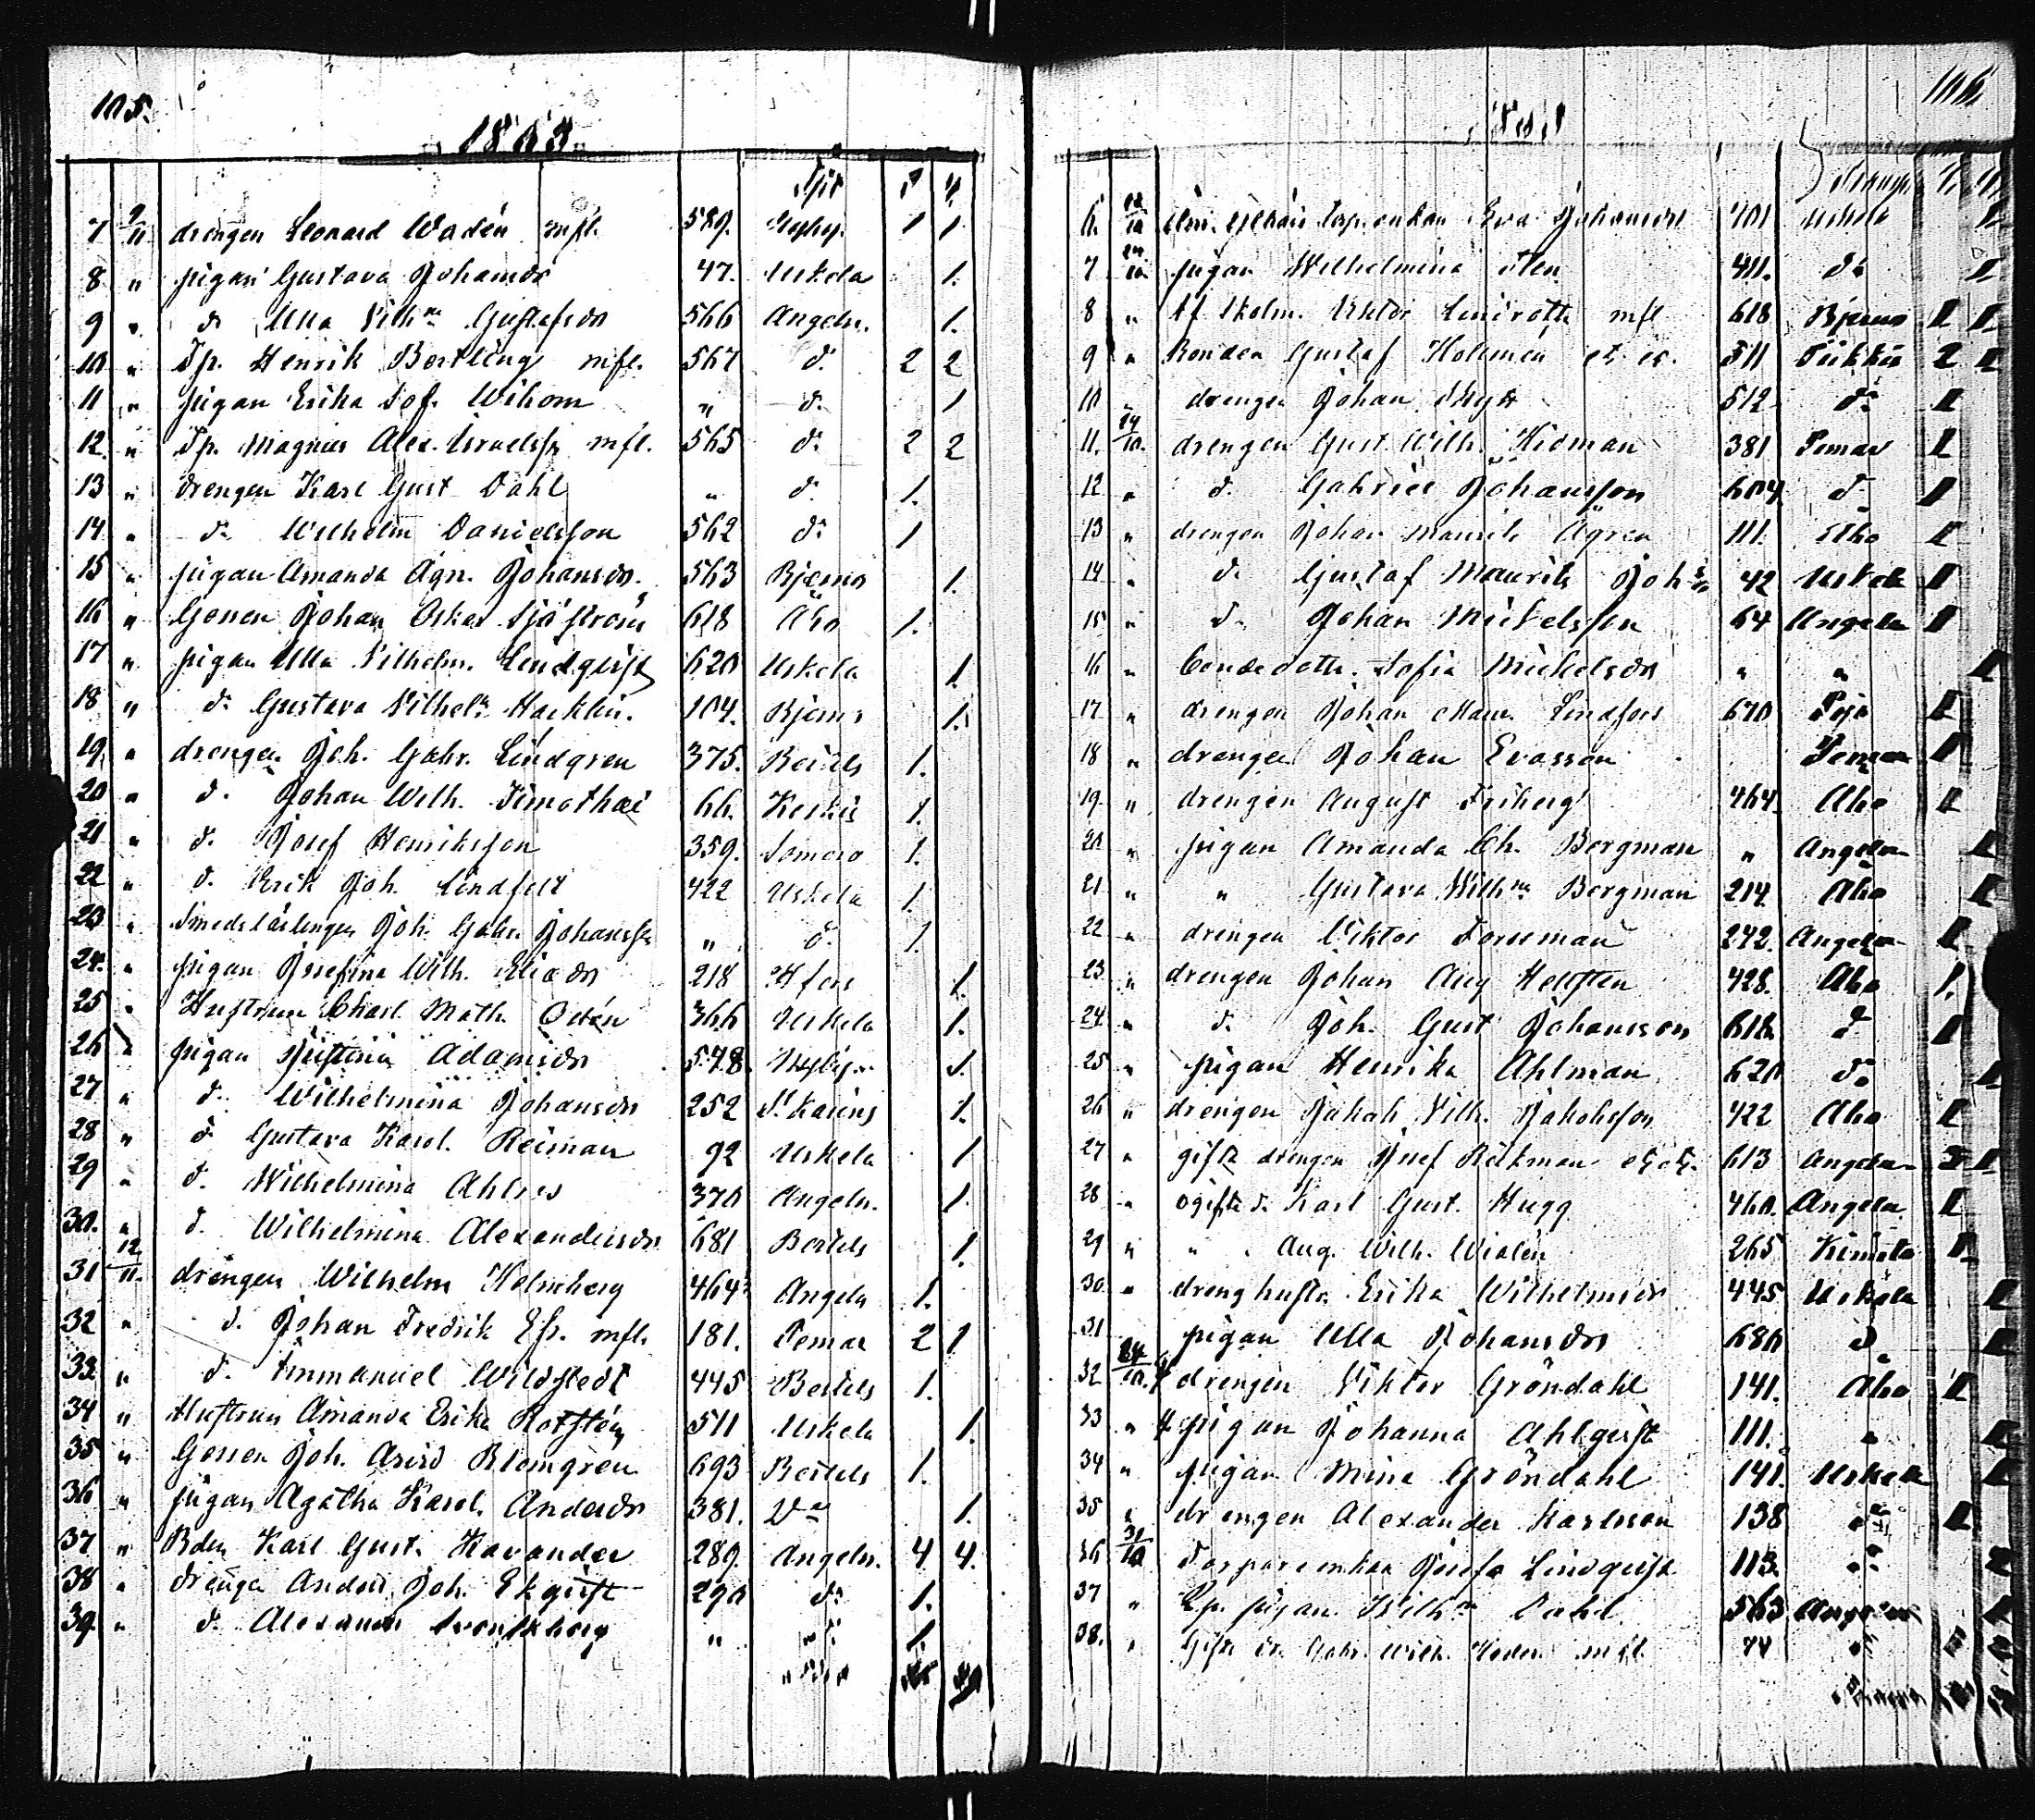 105.
1863.
7 9/11 drengen Leonard Wadén mfl. 589. 1 1
8 " pigan Gustava Johansdr 47. Uskela 1.
9 " do Ulla Vilhna Gustafsdr 566 Angeln. 1.
10 " Tp. Henrik Bertling mfl. 567 do 2 2
11 " pigan Erika Sof. Wihom " do 1
12. " Tp. Magnus Alex. Israelss. mfl. 565 do 2 2
13 " drengen Karl Gust Dahl " do 1.
14 " do Wilhelm Danielsson 562 do 1
15 " pigan Amanda Agn. Johansdr. 563 Bjerno 1.
16 " Gossen Johan Oskar Sjöström 618 Åbo 1.
17 " pigan Ulla Vilhelm. Lindqvist 620 Uskela 1.
18 " do Gustava Vilhel. Hacklin. 104. Bjerno 1.
19. " drengen Joh. Gabr. Lindgren 375. Bertels 1.
20 " d. Johan Wilh. Timothei 66. Kiskis 1.
21 " d. Josef Henriksson 359. Somero 1.
22 " d. Erik Joh. Lindfelt 422 Uskela 1.
23 " Smedslärlingen Joh. Gabr. Johanss. " d. 1.
24. " pigan Josefina Wilh. Eliasdr 218 Hfors 1.
25 " Hustrun Charl. Math. Odén 366 Uskela 1.
26 " pigan Justina Adamsdr 548. 1.
27 " d. Wilhelmina Johansdr 252 St Karins 1.
28 " d. Gustava Karol. Reiman 92 Uskela 1
29 " d. Wilhelmina 370 Angeln. 1.
30. " d. Wilhelmina Alexandersdr 681 Bertels 1.
31 12/11. drengen Wilhelm Holmberg 464 Angeln 1.
32 " d. Johan Fredrik mfl. 181. Pemar 2 1
33 " d. Immanuel Wildstedt 445 Bertels 1.
34 " Hustrun Amanda Erika Rotstén 511 Uskela 1.
35 " Gossen Joh. Arvid Blomgren 693 Bertels 1.
36 " pigan Agatha Karol. Andersdr 381. 1.
37 " Bden Karl Gust. Kavander 289. Angeln. 4 4.
38 " drengen Anders Joh. Ekqvist 290 do 1.
39. " d. Alexander " 1
6. enkan Eva Johansdr 401 Uskela 1
7 pigan Wilhelmina 411. do 1
8 " Viktor mfl 618 Bjerno 1 1
9 " Bonden Gustaf Holmén 511 Piikkis 2 1
10 " drengen Johan 512 do 1
11. 14/10. drengen Gust. Wilh. Hidman 381 Pemar 1
12 " d. Gabriel Johansson 604 d. 1
13 " drengen Johan Maurits Ågren 111. 1
14 " d. Gustaf Maurits Joh:s 42 Uskela 1
15 " d. Johan Mickelsson 64 Angeln 1
16 " Bondedottr. Sofia Mickelsdr " " 1
17 " drengen Johan Lindfors 670 Pojo 1
18 " drengen Johan Evasson 1
19. " drengen August Friberg 464. Åbo 1
20 " pigan Amanda Ch. Bergman " Angeln 1
21 " " Gustava Vilhna Bergman 214. Åbo 1
22 " drengen Viktor Forsman 242. Angeln 1
23 " drengen Johan Aug Hellsten 428. Åbo 1.
24. " d. Joh. Gust Johansson 618. d. 1
25 " pigan Henrika Ahlman 620 do 1
26 " drengen Jakob Vilh. Jakobsson 422 Åbo 1
27 " gifta drengen Josef 613 Angeln 1
28 " ogifta d. Karl Gust. Hugg 460. Angeln 1
29 " " Aug. Wilh. 265. Kimito 1
30 " drenghustr. Erika Wilhelmsdr 445 Uskela 1
31 pigan Ulla Johansdr 680 d. 1
32 drengen Viktor Gröndahl 141. Åbo 1
33 " pigan Johanna Ahlqvist 111. " 1
34 " pigan Mina Gröndahl 141. Uskela 1
35 " drengen Alexander Karlsson 138 1
36 31/10 Torpareenkan Josefa Lindqvist 113.
37 " pigan Wilhna Dahl 563 Angeln
38. " Gift dr. Gabr. Wilh. mfl